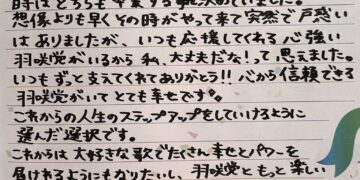 時はどちらも卒業する
決めていました。
想像よりも早くその時がやって来て突然で戸惑い
はありましたが、いつも応援してくれる心強い
羽咲党がいるから私、大丈夫だな!って思えました。
いつもずっと支えてくれてありがとう!!心から信頼できる
羽咲党がいてとても幸せです。
これからの人生のステップアップをしていけるように
選んだ選択です。
これからは大好きな歌でたくさん幸せとパワーを
届けれるようにもなりたいし、羽咲党ともっと楽しい